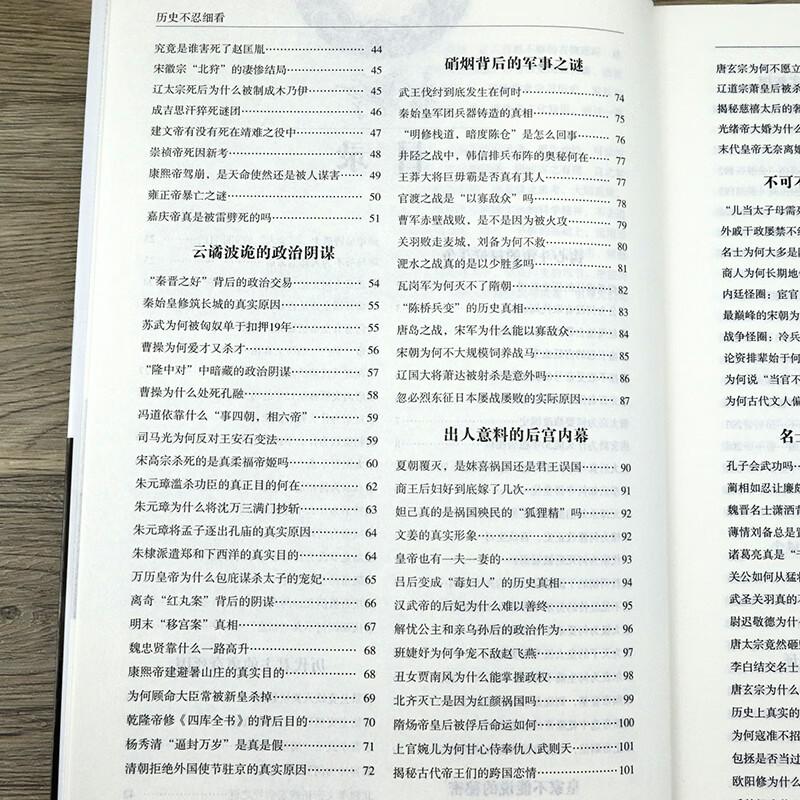 历史不忍细看
究竟是谁害死了赵匡胤 44
宋徽宗“北狩”的凄惨结局 45
辽太宗死后为什么被制成木乃伊 45
成吉思汗猝死谜团 46
建文帝有没有死在靖难之役中 47
崇祯帝死因新考 48
康熙帝驾崩，是天命使然还是被人谋害 49
雍正帝暴亡之谜 50
嘉庆帝真是被雷劈死的吗 51
云谲波诡的政治阴谋
“秦晋之好”背后的政治交易 54
秦始皇修筑长城的真实原因 55
苏武为何被匈奴单于扣押19年 55
曹操为何爱才又杀才 56
“隆中对”中暗藏的政治阴谋 57
曹操为什么处死孔融 58
冯道依靠什么“事四朝，相六帝” 59
司马光为何反对王安石变法 59
宋高宗杀死的是真柔福帝姬吗 60
朱元璋滥杀功臣的真正目的何在 62
朱元璋为什么将沈万三满门抄斩 63
朱元璋将孟子逐出孔庙的真实原因 64
朱棣派遣郑和下西洋的真实目的 64
万历皇帝为什么包庇谋杀太子的宠妃 65
离奇“红丸案”背后的阴谋 66
明末“移宫案”真相 67
魏忠贤靠什么一路高升 68
康熙帝建避暑山庄的真实目的 68
为何顾命大臣常被新皇杀掉 69
乾隆帝修《四库全书》的背后目的 70
杨秀清“逼封万岁”是真是假 71
清朝拒绝外国使节驻京的真实原因 72
硝烟背后的军事之谜
武王伐纣到底发生在何时 74
秦始皇军团兵器铸造的真相 75
“明修栈道，暗度陈仓”是怎么回事 76
井陉之战中，韩信排兵布阵的奥秘何在 77
王莽大将巨毋霸是否真有其人 77
官渡之战是“以寡敌众”吗 78
曹军赤壁战败，是不是因为被火攻 79
关羽败走麦城，刘备为何不救 80
淝水之战真的是以少胜多吗 81
瓦岗军为何灭不了隋朝 82
“陈桥兵变”的历史真相 83
唐岛之战，宋军为什么能以寡敌众 84
宋朝为何不大规模饲养战马 85
辽国大将萧达被射杀是意外吗 86
忽必烈东征日本屡战屡败的实际原因 87
出人意料的后宫内幕
夏朝覆灭，是妹喜祸国还是君王误国 90
商王后妇好到底嫁了几次 91
妲己真的是祸国殃民的“狐狸精”吗 92
文姜的真实形象 92
皇帝也有一夫一妻的 93
吕后变成“毒妇人”的历史真相 94
汉武帝的后妃为什么难以善终 95
解忧公主和亲乌孙后的政治作为 96
班婕妤为何争宠不敌赵飞燕 97
丑女贾南风为什么能掌握政权 98
北齐灭亡是因为红颜祸国吗 99
隋炀帝皇后被俘后命运如何 100
上官婉儿为何甘心侍奉仇人武则天 101
揭秘古代帝王们的跨国恋情 101
唐玄宗为何不愿立
辽道宗萧皇后被杀
揭秘慈禧太后的奢
光绪帝大婚为什么
末代皇帝无奈离婚
不可不
“儿当太子母需死
外戚干政屡禁不绝
名士为何大多是
商人为何长期地
内廷怪圈：宦官
最巅峰的宋朝为
战争怪圈：冷兵
论资排辈始于何
为何说“当官不
为何古代文人偏
名士
孔子会武功吗
蔺相如忍让廉颇
魏晋名士潇洒背
薄情刘备总是
诸葛亮真是“
关公如何从猛将
武圣关羽真的不
尉迟敬德为什
唐太宗竟然砸
李白结交名士
唐玄宗为什么
历史上真实的
为何寇准不招
包拯是否当过
欧阳修为什么